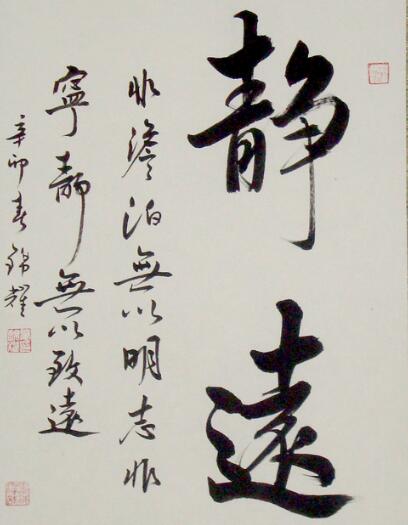 静遠
非澹泊無以明志非
寧静無以致遠
辛卯春錦耀